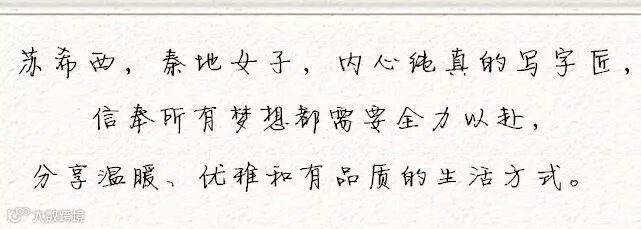 苏希西，秦地女子，内心纯真的写字匠，
信奉所有梦想都需要全力以赴，
分享温暖、优雅和有品质的生活方式。
大数跨境